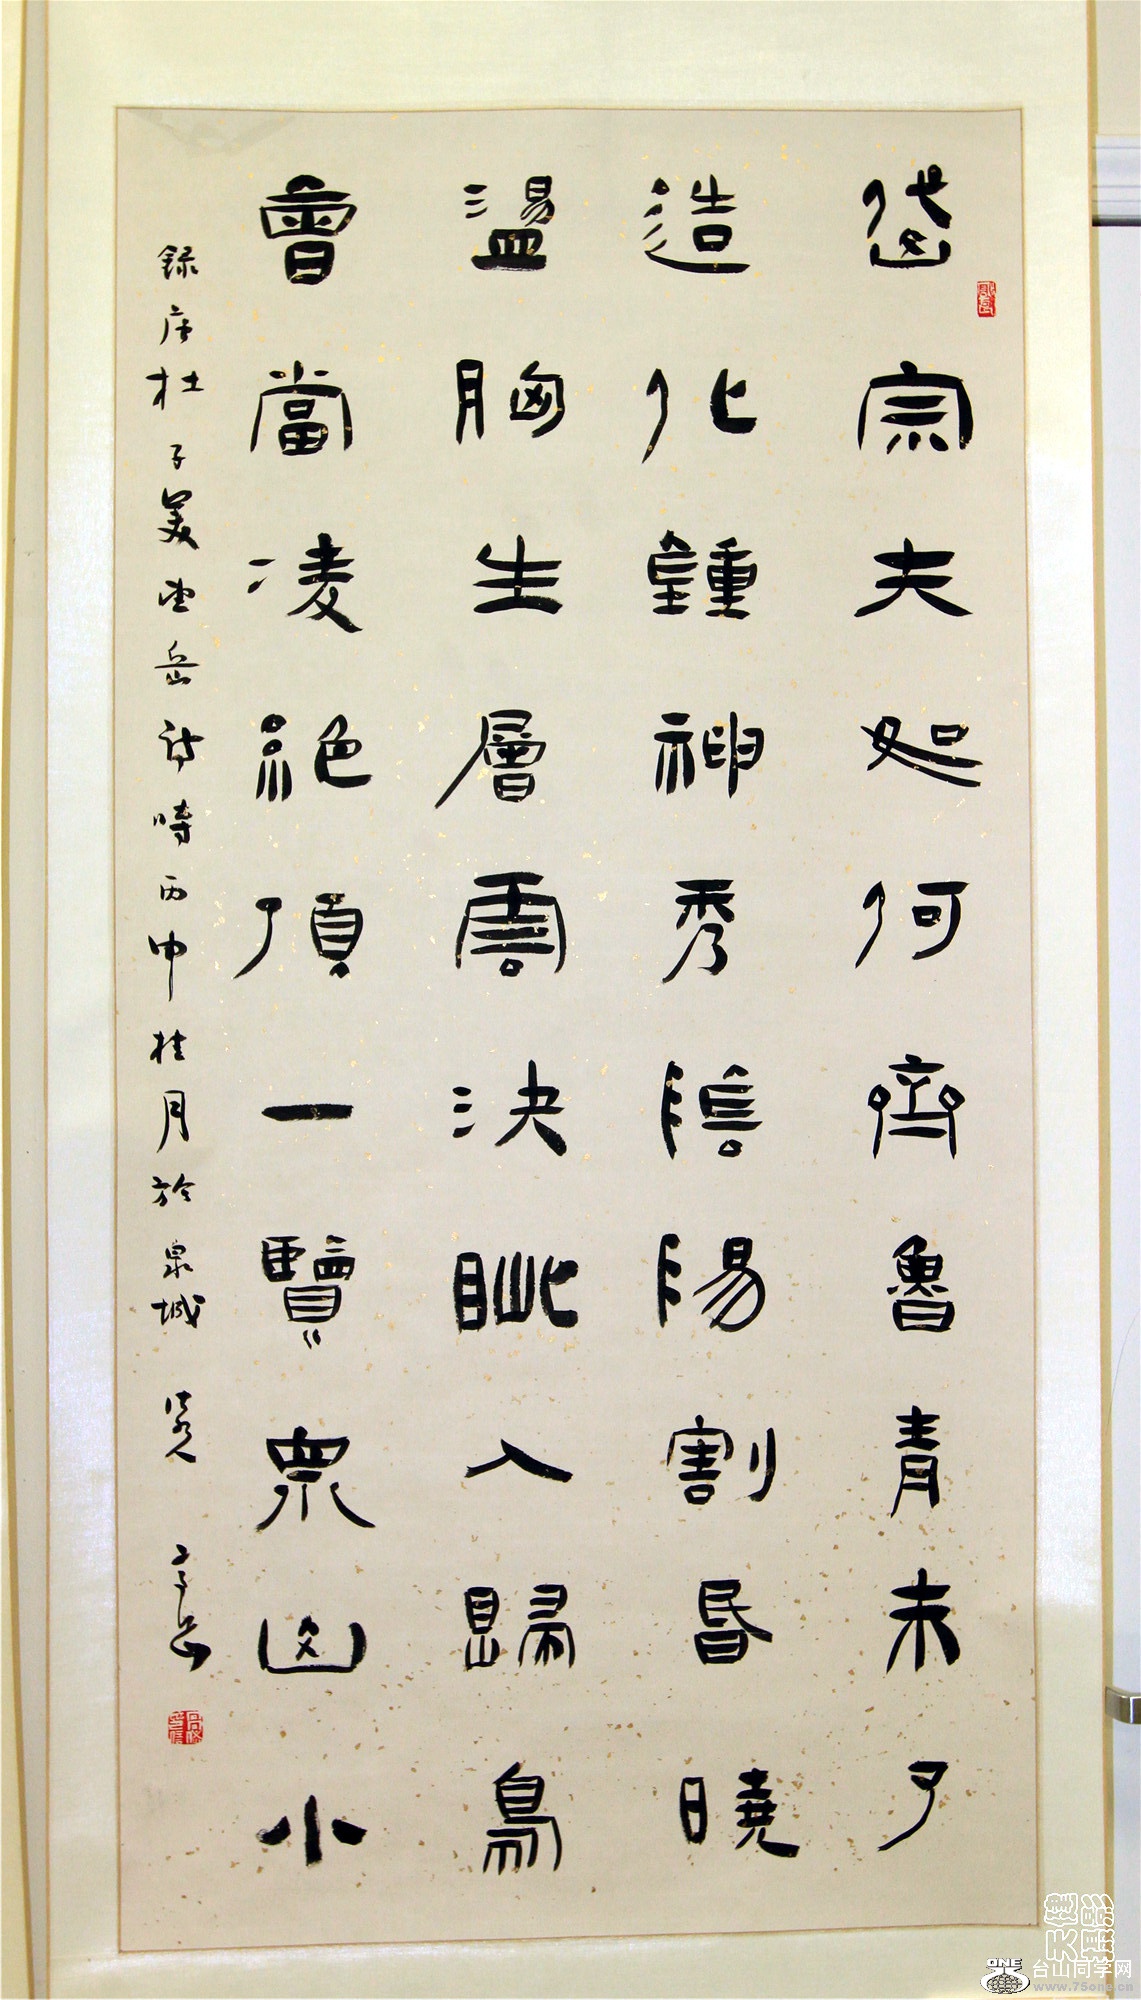 岱宗夫如何齊魯青未了
造化鍾神秀陰陽割昏曉
盪胸生層雲決眦入歸鳥
會當凌絕頂一覽眾山小
録唐杜子美望岳詩時丙申桂月於泉城
ONE
台山同学网
www.75ong.cn